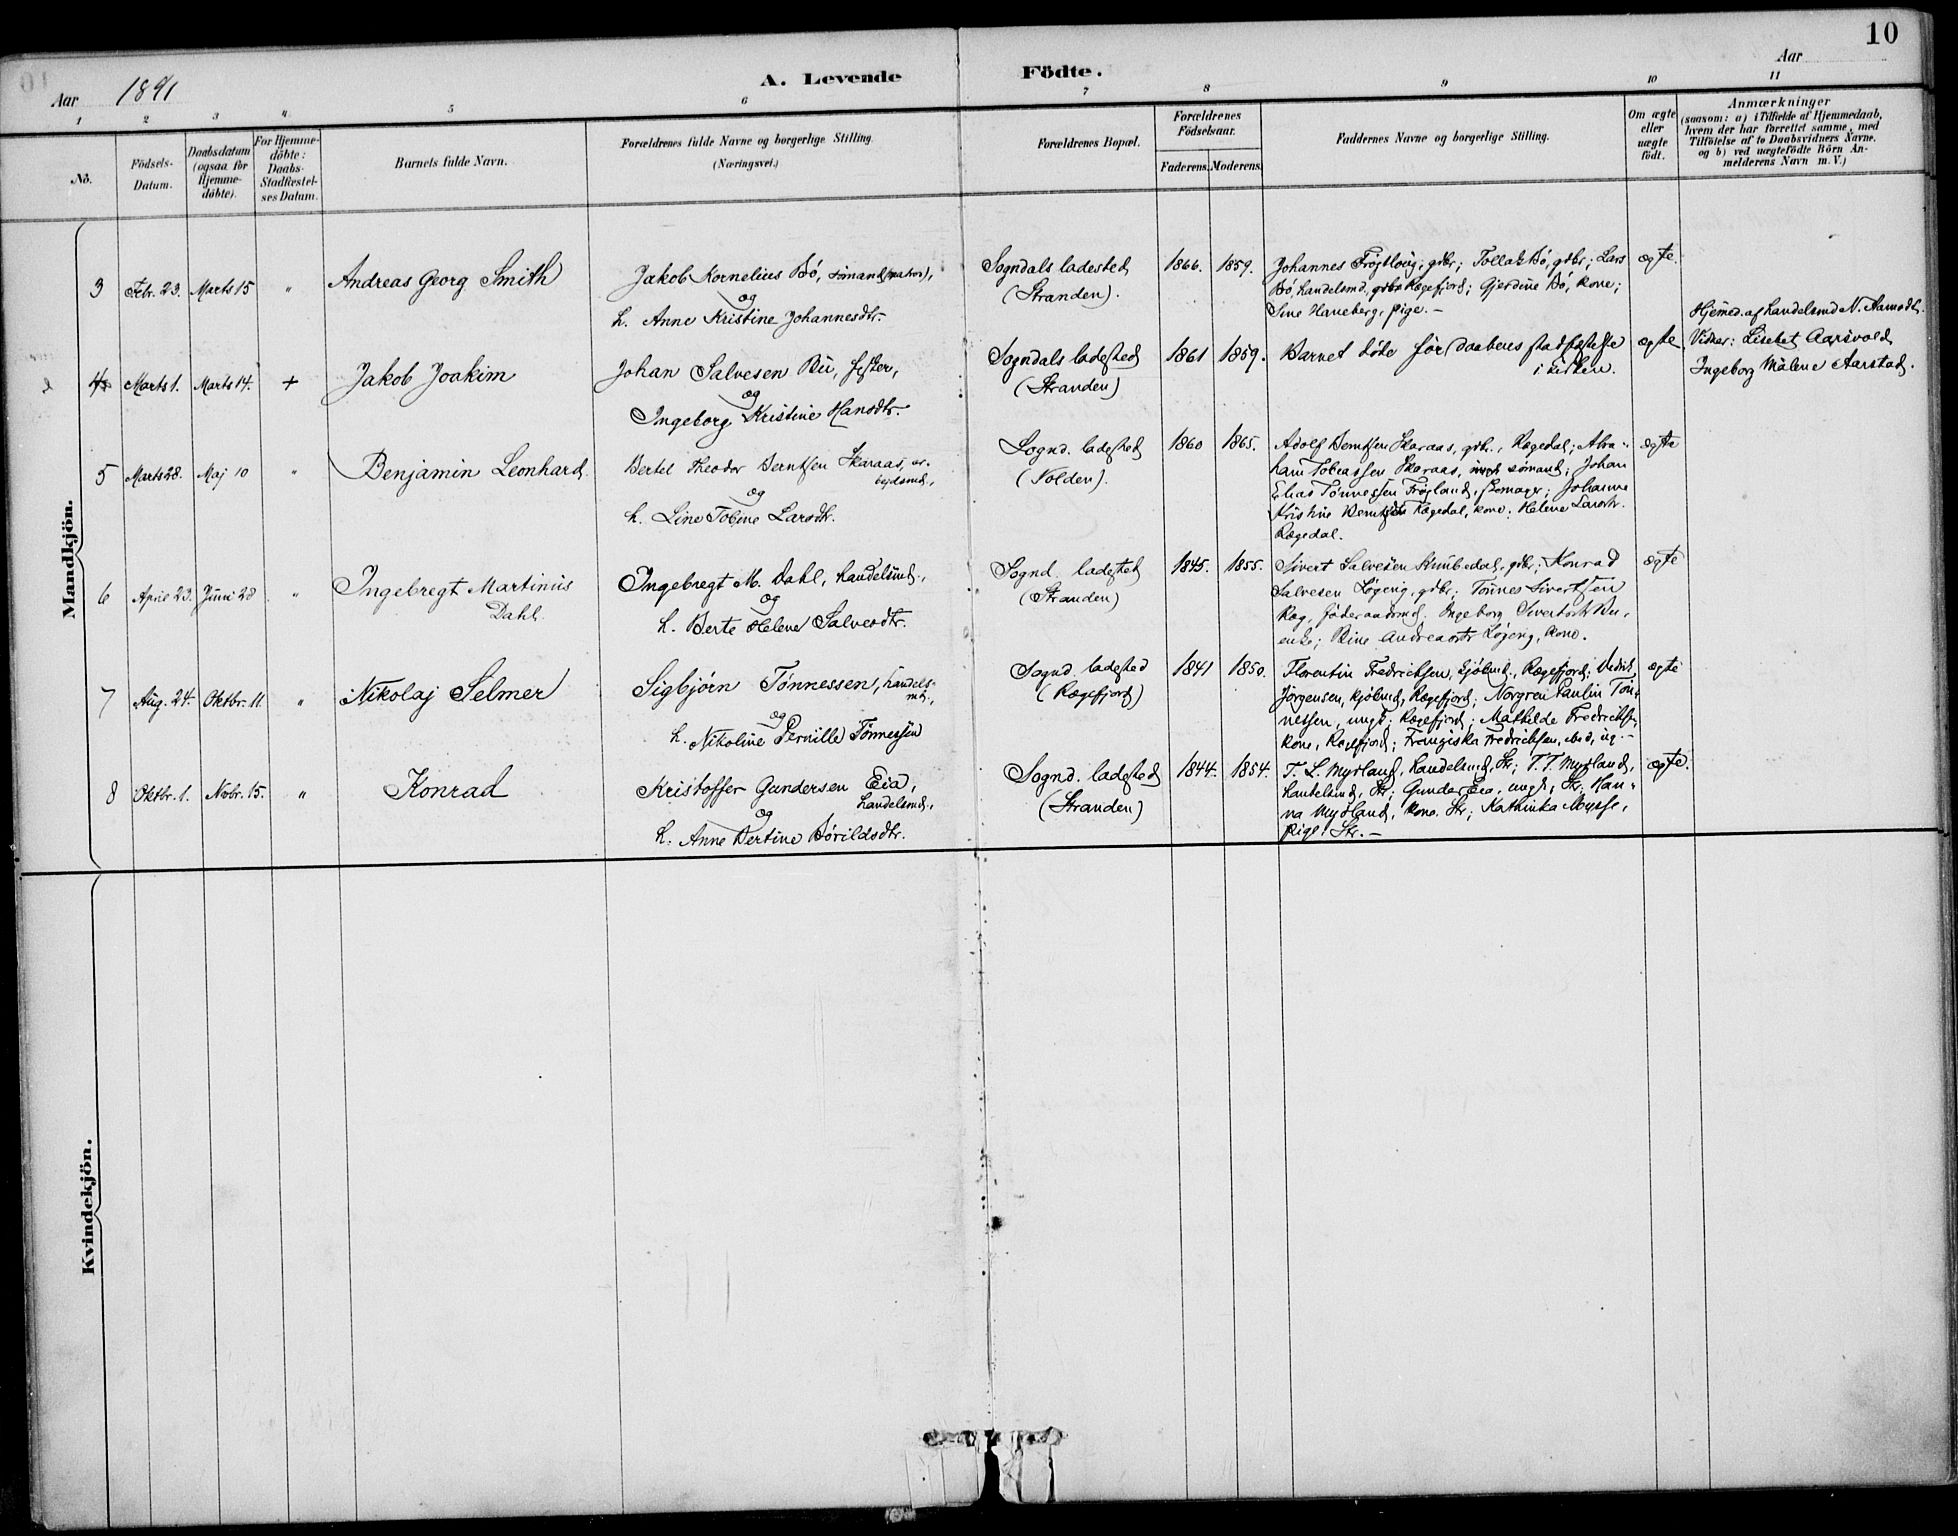 10
Aar 1891
A. Levende Födte.
Aar
1 2 3 4 5 6 7 8 9 10 11
No.
Födsels-
Datum.
Daabsdatum
(ogsaa for
Hjemme-
döbte).
For Hjemme-
döbte:
Daabs-
Stadfæstel-
ses Datum.
Barnets fulde Navn.
Forældrenes fulde Navne og borgerlige Stilling.
(Næringsvei.)
Forældrenes Bopæl.
Forældrenes
Födselsaar.
Faderens. Moderens.
Faddernes Navne og borgerlige Stilling.
Om ægte
eller
uægte
födt.
Anmærkninger
(saasom: a) i Tilfælde af Hjemmedaab,
hvem der har forrettet samme, med
Tilföielse af to Daabsvidners Navne.
og b) ved uægtefödte Börn An-
melderens Navn m. V.)
Mandkjön.
3 Febr. 23. Marts 15 " Andreas Georg Smith
Jakob Kornelius Bö, sömand (matros),
og
h. Anne Kristine Johannesdtr.
Sogndals ladested
(Stranden).
1866. 1859.
Johannes gdbr; Tollak Bö, gdbr; Lars
Bö, handelsmd, Rægefjord; Gjerdine Bö, kone;
Sine Haneberg, pige. –
ægte.
4 Marts 1. Marts 14. + Jakob Joakim
Johan Salvesen Bu, fisker,
og
Ingeborg Kristine Hansdtr.
Sogndals ladested
(Stranden)
1861 1859.
Barnet döde för daabens stadfæstelse
i kirken.
ægte
Hjemed. af handelsmd N. Aamodt.
Vidner: Lisebet Aarsvold
Ingeborg Malene Aarstad.
5 Marts 28. Maj 10 " Benjamin Leonhard
Bertel Theodor Berntsen Skaraas, ar-
bejdsmd.,
og
h. Line Tobine Larsdtr.
Sognd. ladested
(Volden).
1860 1865.
Adolf Berntsen Skaraas, gdbr., Rægedal; Abra-
ham Tobiassen Skaraas, sömand; Johan
Elias Tönnessen Fröyland, skomager; Johanne
Kristine Rægedal, kone; Helene Larsdtr.
Rægedal.
ægte
6 April 23. Juni 28 " Ingebregt Martinus
Dahl.
Ingebregt M. Dahl, handelsmd.,
og
h. Berte Helene Salvesdtr.
Sognd. ladested
(Stranden)
1845. 1855.
Sivert Salvesen gdbr; Konrad
Salvesen Löyning, gdbr; Tönnes Sivertsen
Ræg, Ingeborg Sivertsdtr Bu,
enke; Andreasdtr kone.
ægte
7 Aug. 24. Oktbr. 11. " Nikolaj Selmer
Sigbjörn Tönnessen, handels-
md.,
og
h. Nikoline Pernille Tönnessen
Sognd. ladested
(Rægefjord)
1841 1850.
Florentin Fredriksen, kjöbmd., Rægefjord;
Jörgensen, kjöbmd, Rægefjord; Norgren Paulin Tön-
nessen, ungk. Rægefjord; Mathilde Fredriksen,
kone, Rægefjord; Franciska Fredriksen,
ægte
8 Oktbr. 1. Novbr. 15. " Konrad
Kristoffer Gundersen Eia,
handelsmd.,
og
h. Anne Bertine Börildsdtr.
Sognd. ladested
(Stranden)
1844. 1854.
T. L. Mydland, handelsmd, Str; T. T. Mydland,
handelsmd, Str; Gunder Eia, ungk, Str; Han-
na Mydland, kone. Str; Kathinka Mysse,
pige. Str. –
ægte.
Kvindekjön.